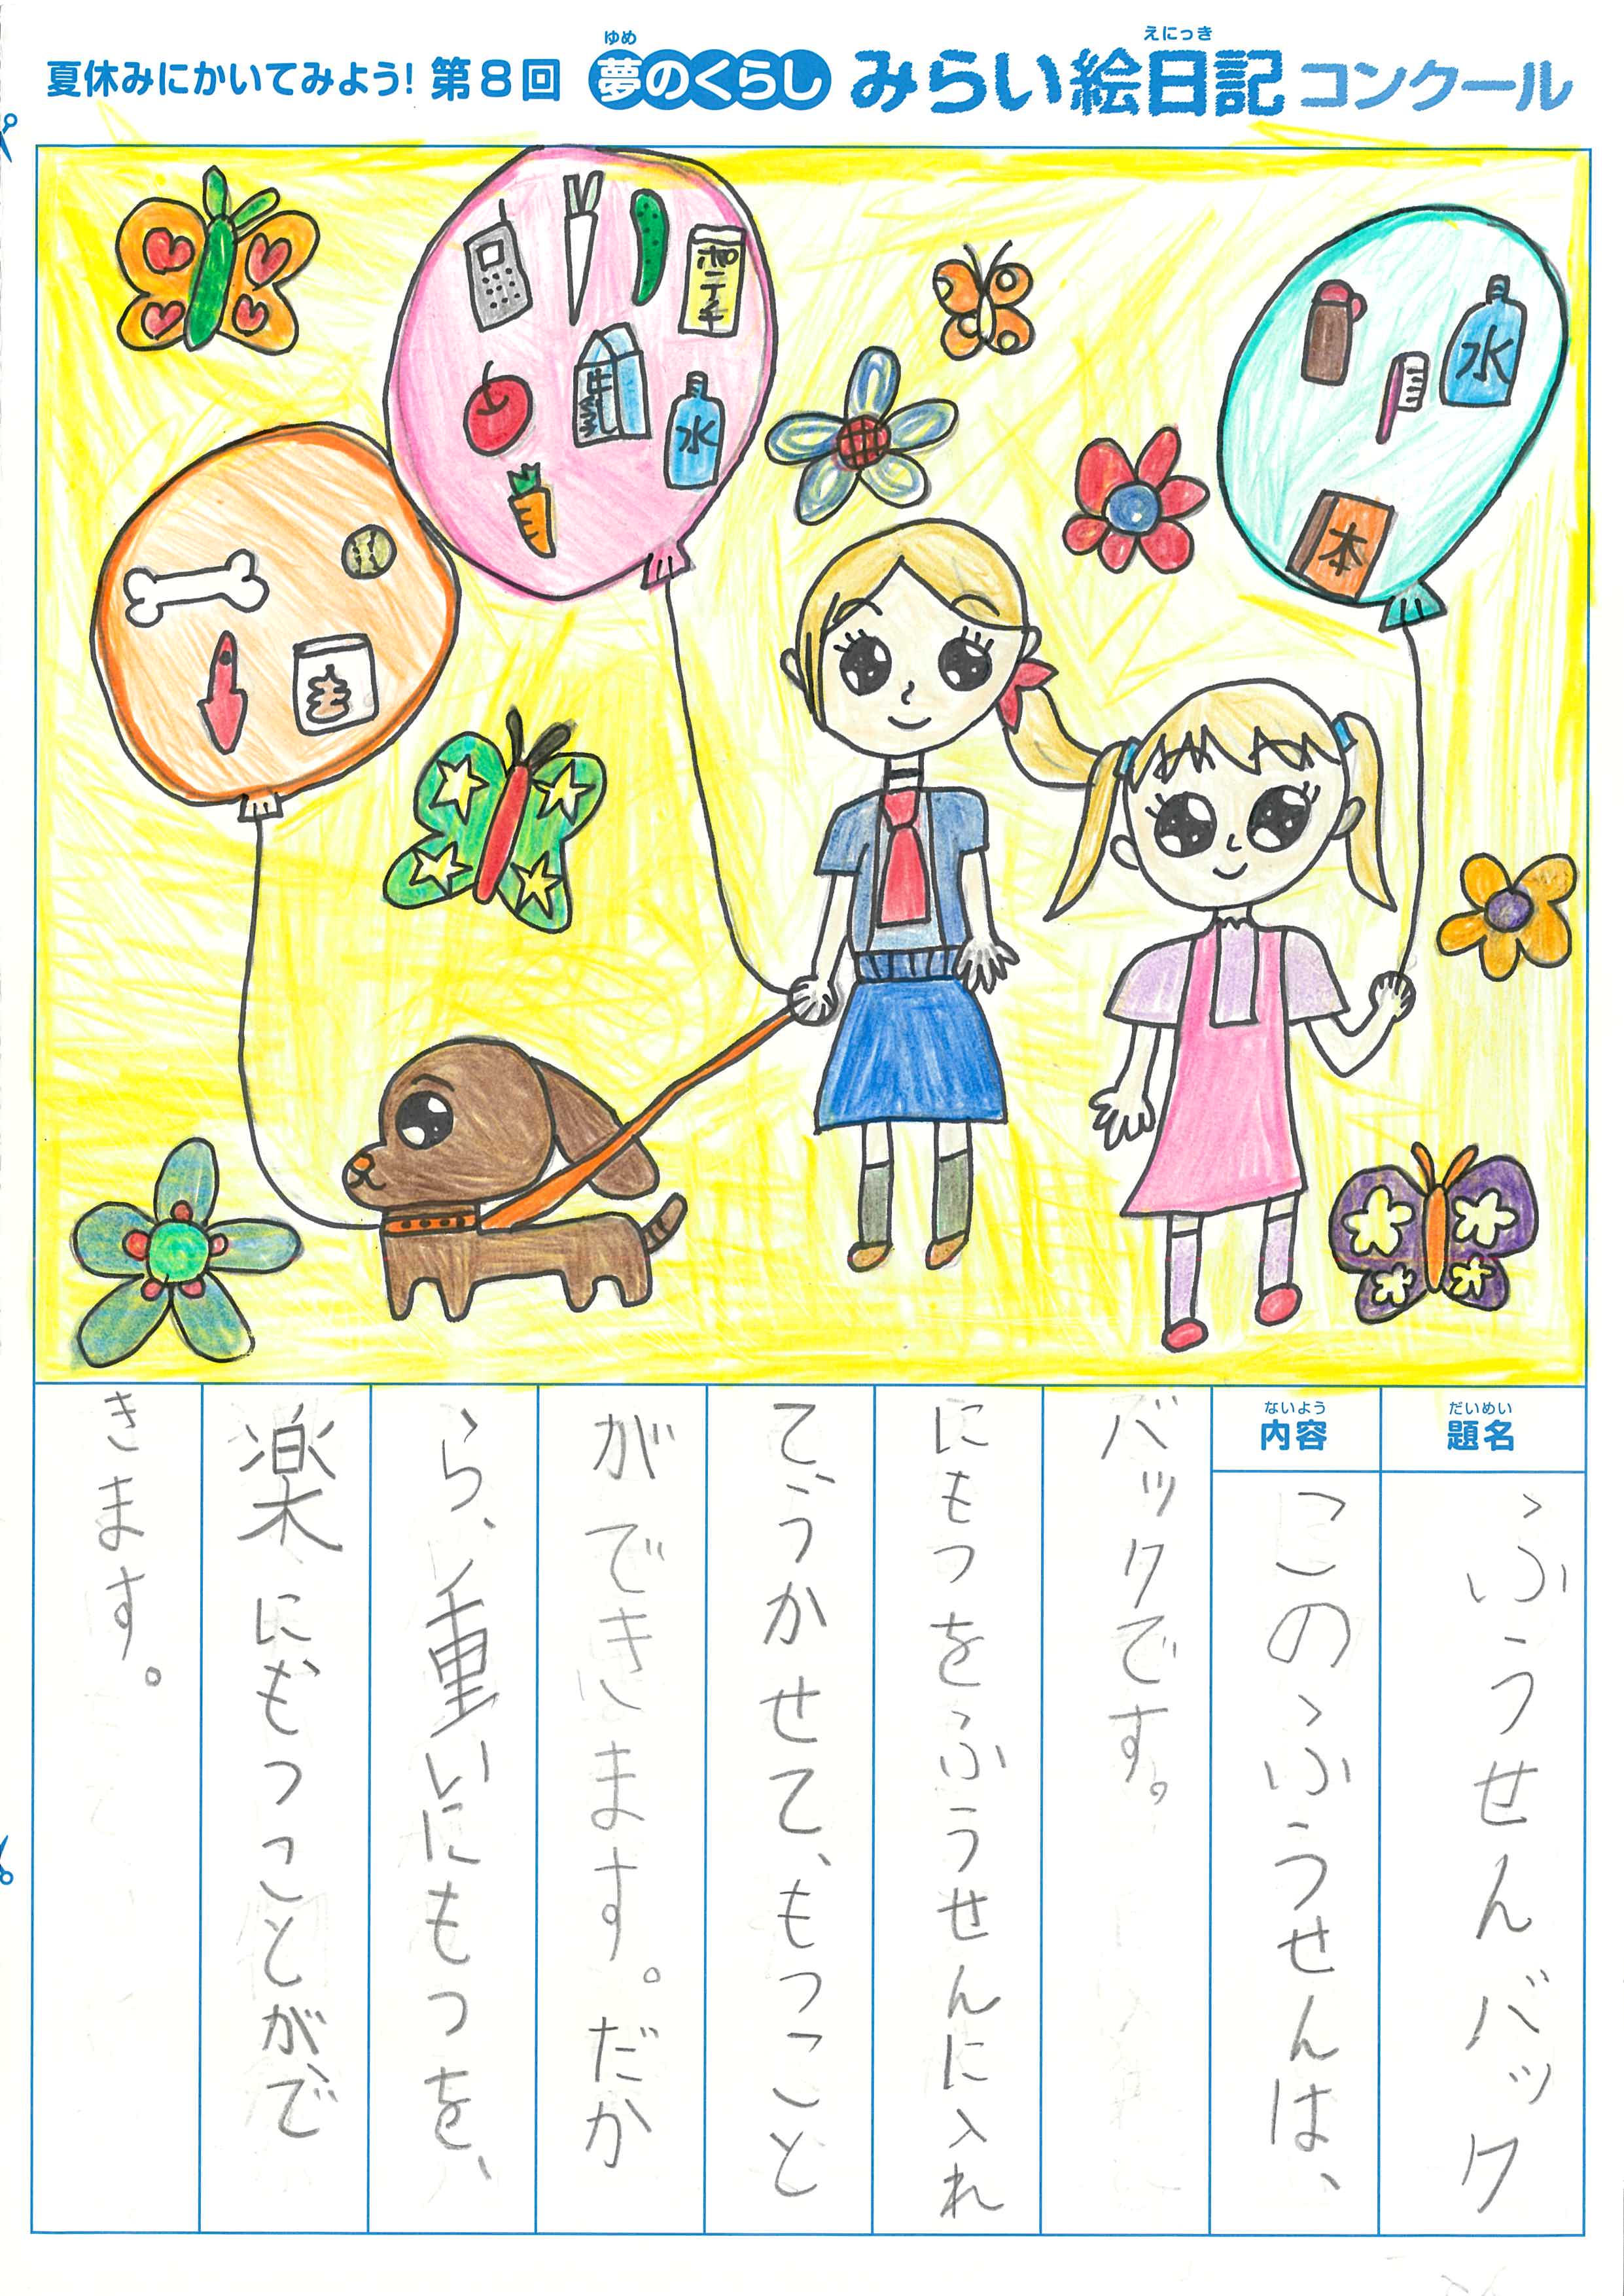 夏休みにかいてみよう! 第8回 夢のくらし みらい絵日記 コンクール
ゆめ
えにっき
ポテチ
牛
水
水
本
だいめい
題名
ふうせんバック
ないよう
内容
このふうせんは、
バックです。
にもつをふうせんに入れ
て、うかせて、もつこと
ができます。だか
ら、重いにもつを、
楽にもつことがで
きます。